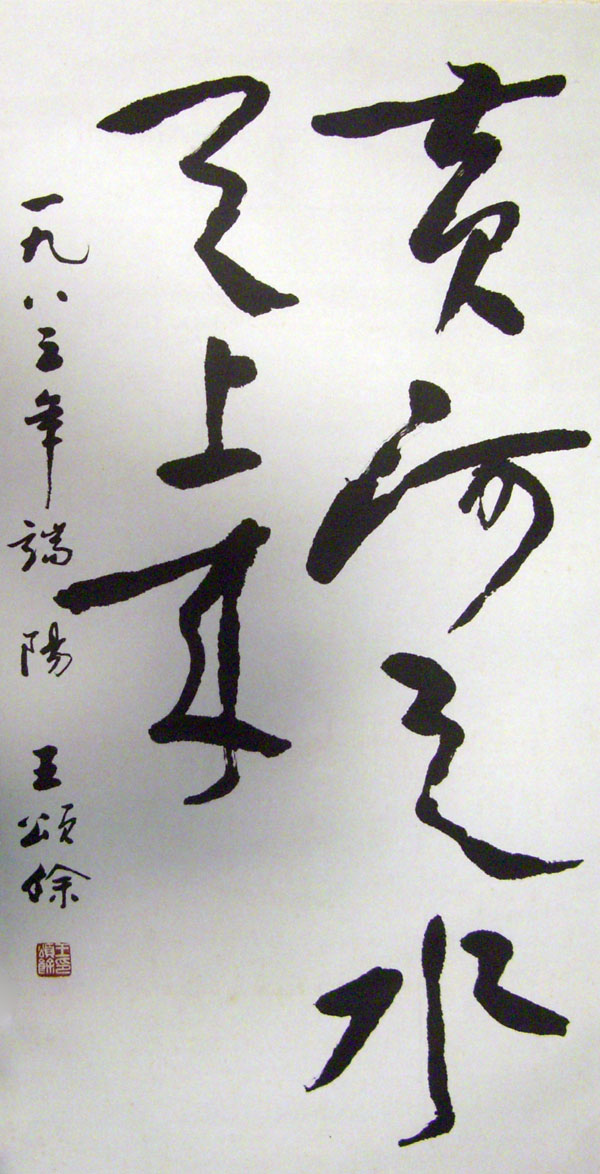 黄河之水
天上来
一九八三年端陽 王頌餘
王頌餘印